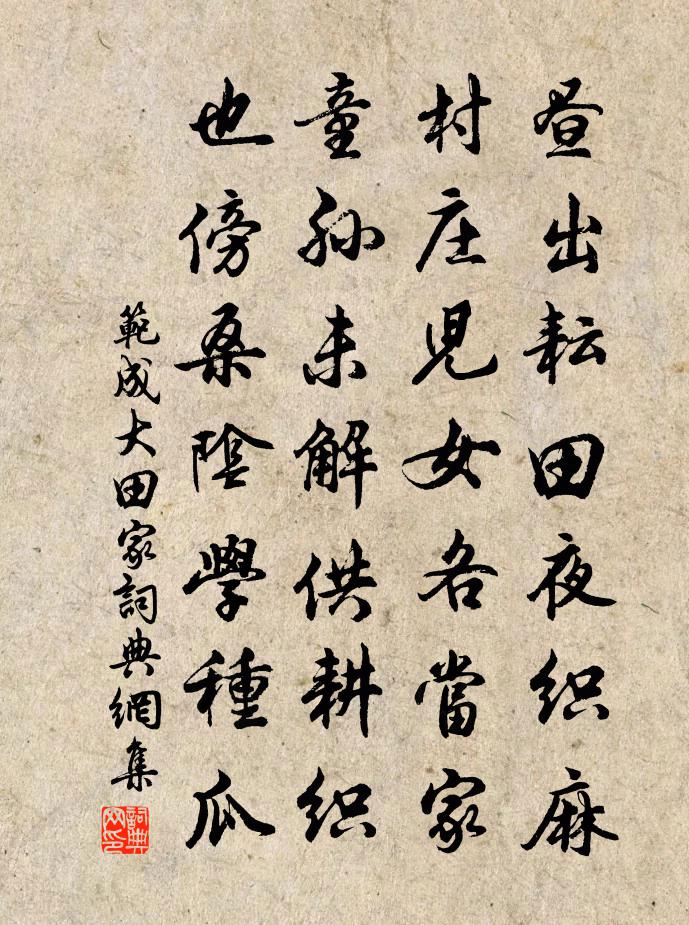 昼出耘田夜织麻
村庄児女各當家
童孙未解供耕织
也傍桑陰學種瓜
範成大田家詞典網集
詞典网印